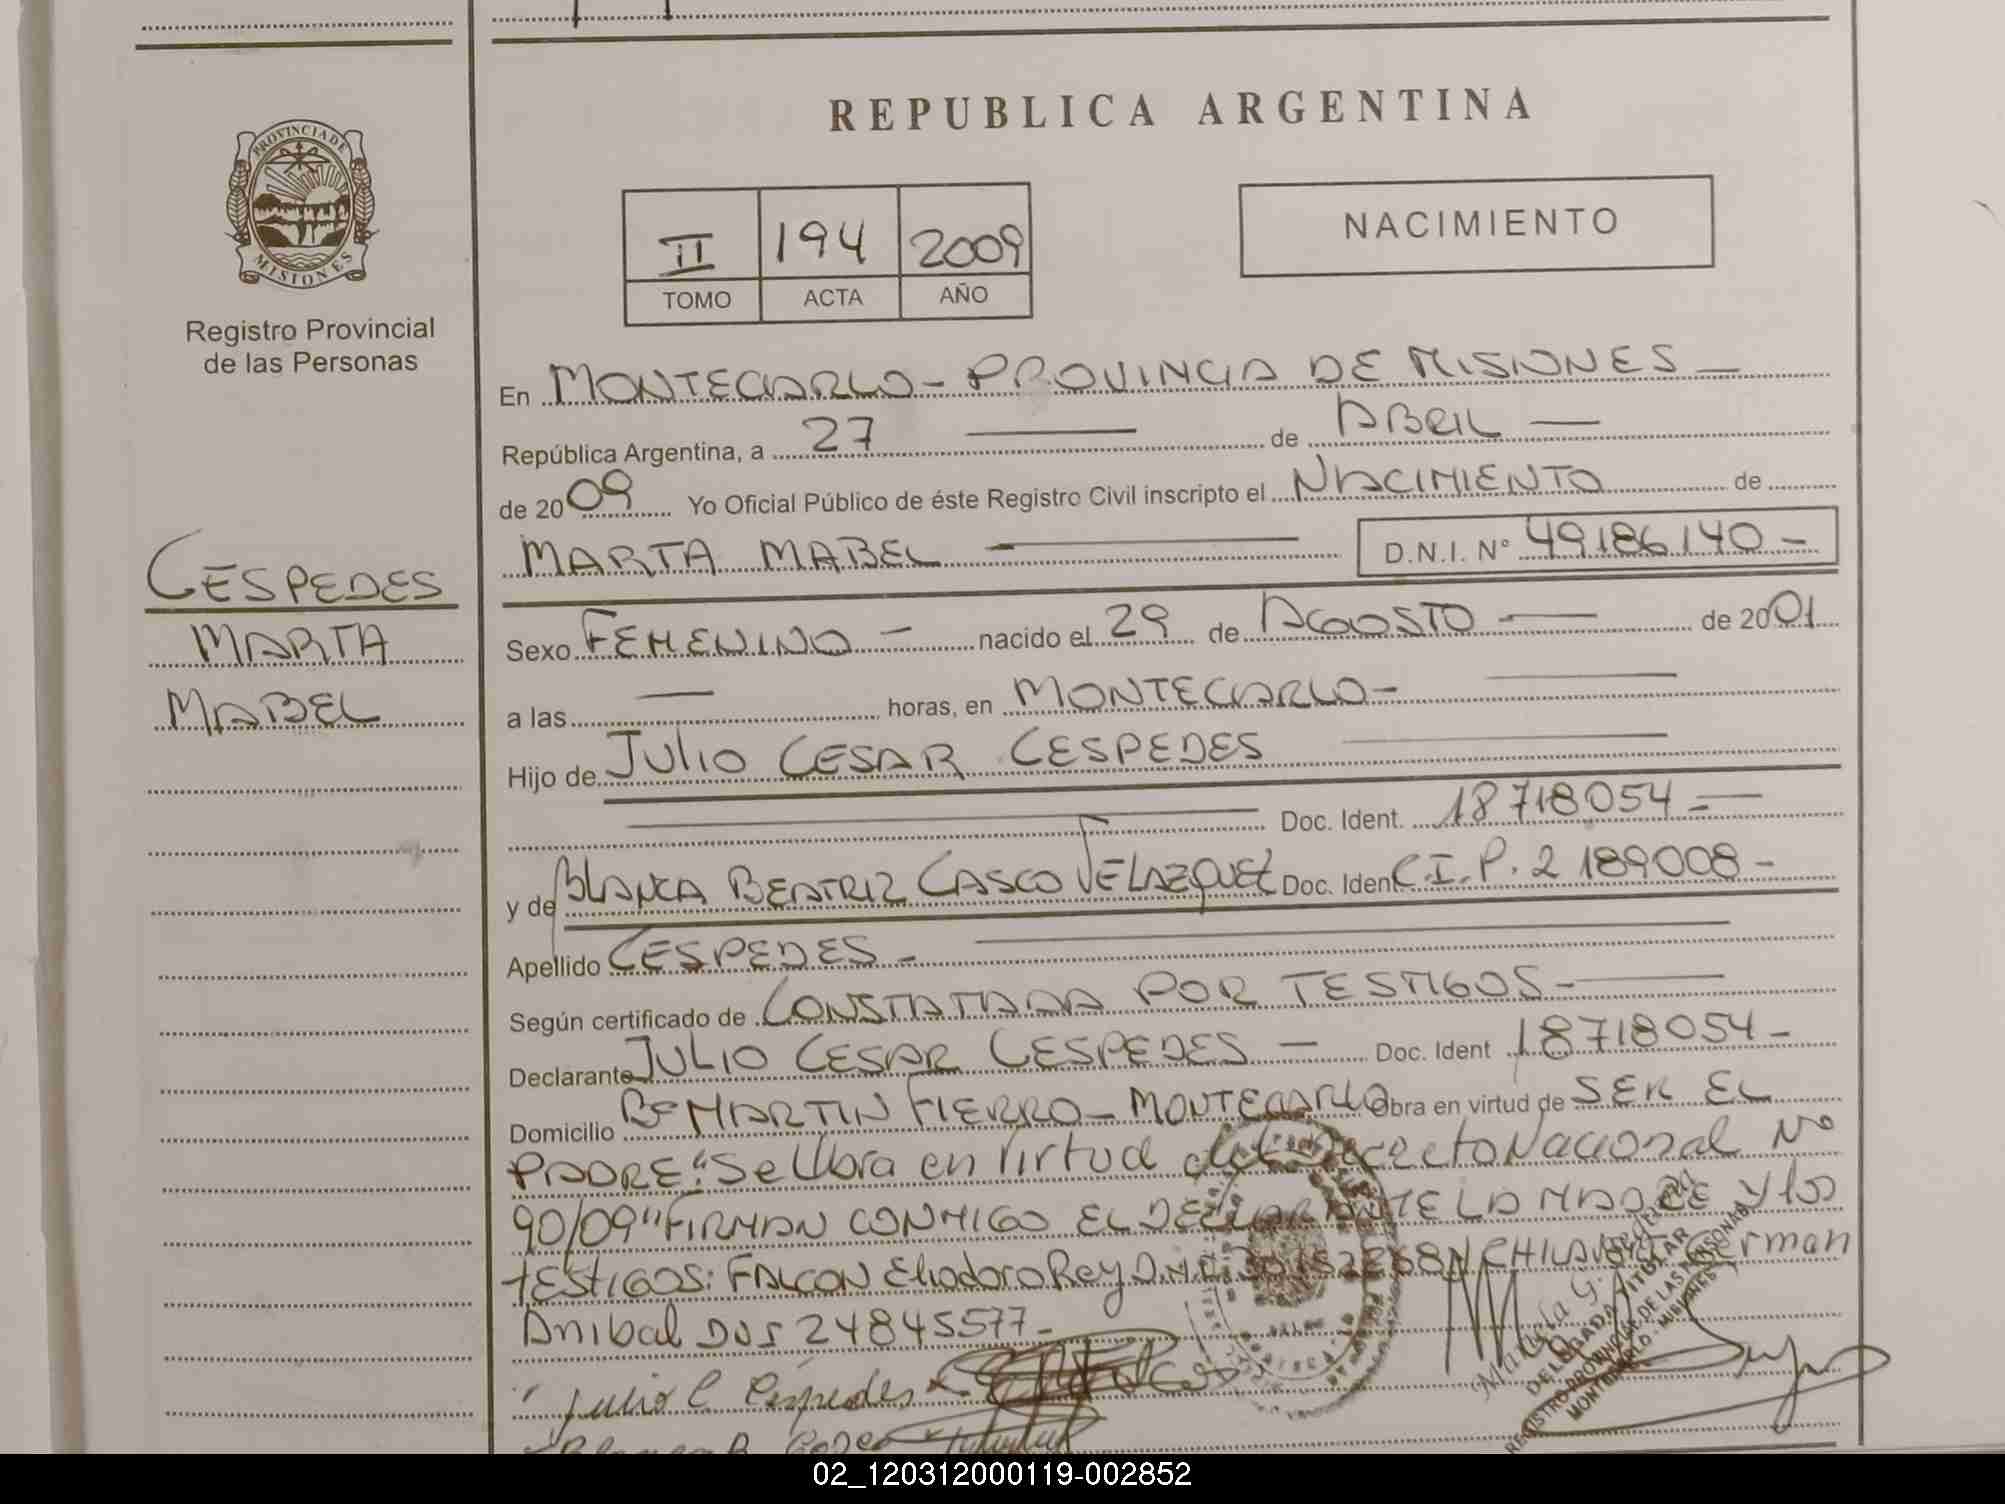 REPUBLICA ARGENTINA
PROVINCIA DE
MISIONES
Registro Provincial
de las Personas
II 194 2009
TOMO ACTA AÑO
NACIMIENTO
En MONTECARLO - PROVINCIA DE MISIONES -
República Argentina, a 27 de ABRIL
de 2009 Yo Oficial Público de éste Registro Civil inscripto el NACIMIENTO de
MARTA MABEL D.N.I. N° 49186140 -
CESPEDES
MARTA
MABEL
Sexo FEMENINO - nacido el 29 de AGOSTO de 2001
a las — horas, en MONTECARLO -
Hijo de JULIO CESAR CESPEDES
Doc. Ident. 18718054 -
y de BLANCA BEATRIZ CASCO VELAZQUEZ Doc. Ident C.I.P. 2189008 -
Apellido CESPEDES -
Según certificado de CONSTATADA POR TESTIGOS -
Declarante JULIO CESAR CESPEDES - Doc. Ident 18718054 -
Domicilio Bº MARTIN FIERRO - MONTECARLO Obra en virtud de SER EL
PADRE "Se Labra en Virtud del Decreto Nacional Nº
90/09" FIRMAN CONMIGO EL DECLARANTE LA MADRE y los
TESTIGOS: FALCON Eliodoro Rey D.N.I. CHILAVERT German
Anibal DNI 24845577 -
Julio C Cespedes
DELEGADA TITULAR
REGISTRO PROVINCIAL DE LAS PERSONAS
MONTECARLO - MISIONES
02_120312000119-002852